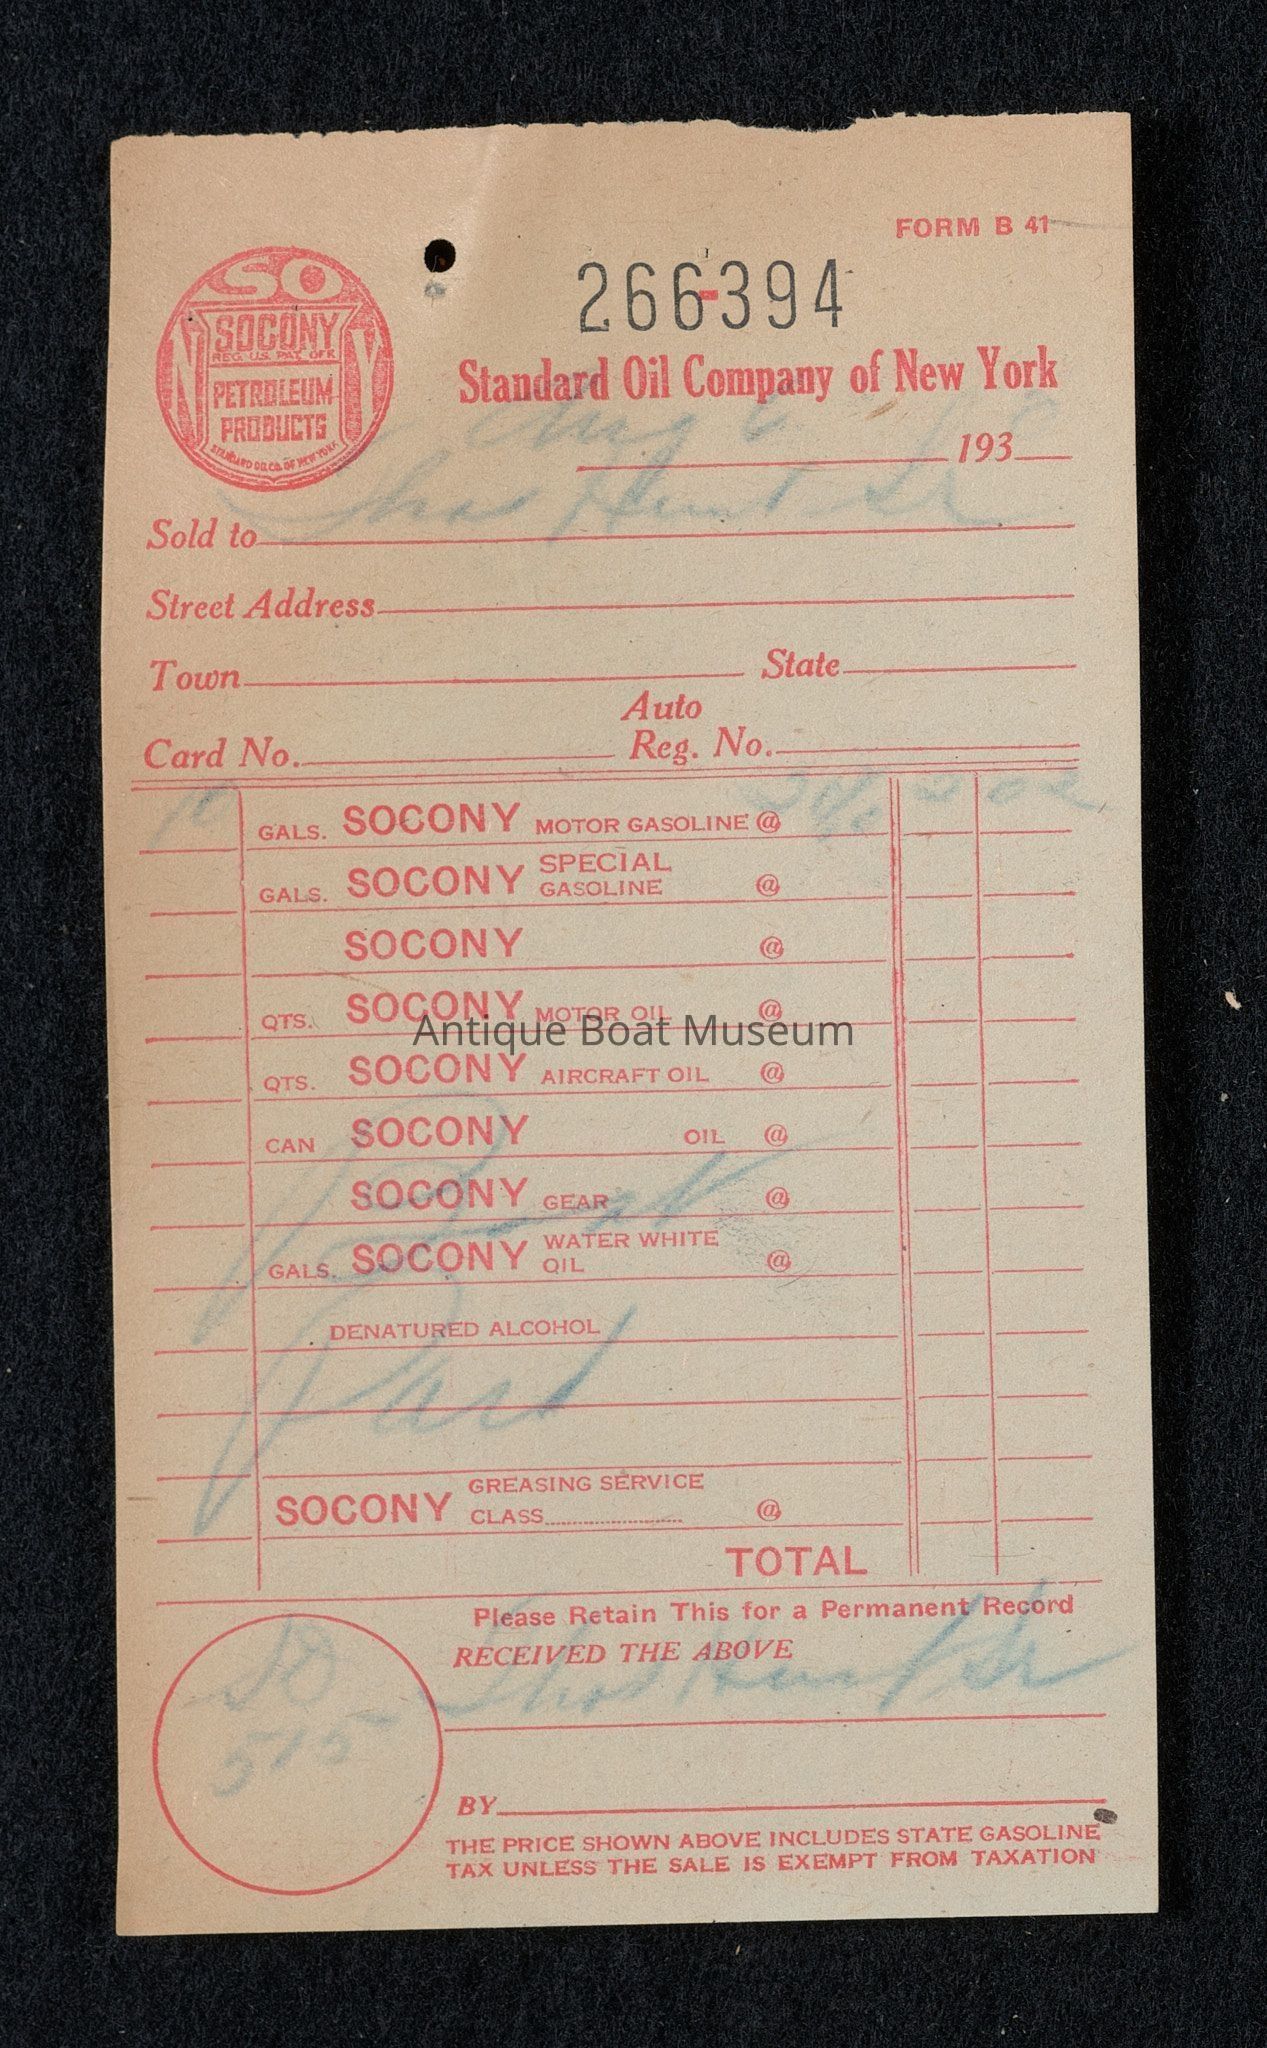 FORM B 41
SO
SOCONY
REG. U.S. PAT. OFF.
PETROLEUM
PRODUCTS
STANDARD OIL CO. OF NEW YORK
NY
266-394
Standard Oil Company of New York
Aug 6 193
Sold to Thos Hunt Jr
Street Address
Town State
Auto
Card No. Reg. No.
10 GALS. SOCONY MOTOR GASOLINE @ 2 02
GALS. SOCONY SPECIAL GASOLINE @
SOCONY @
QTS. SOCONY MOTOR OIL @
Antique Boat Museum
QTS. SOCONY AIRCRAFT OIL @
CAN SOCONY OIL @
SOCONY GEAR @
Boat
GALS. SOCONY WATER WHITE OIL @
DENATURED ALCOHOL
Paid
SOCONY GREASING SERVICE
CLASS @
TOTAL
Please Retain This for a Permanent Record
RECEIVED THE ABOVE
Thos Hunt Jr
515
BY
THE PRICE SHOWN ABOVE INCLUDES STATE GASOLINE
TAX UNLESS THE SALE IS EXEMPT FROM TAXATION